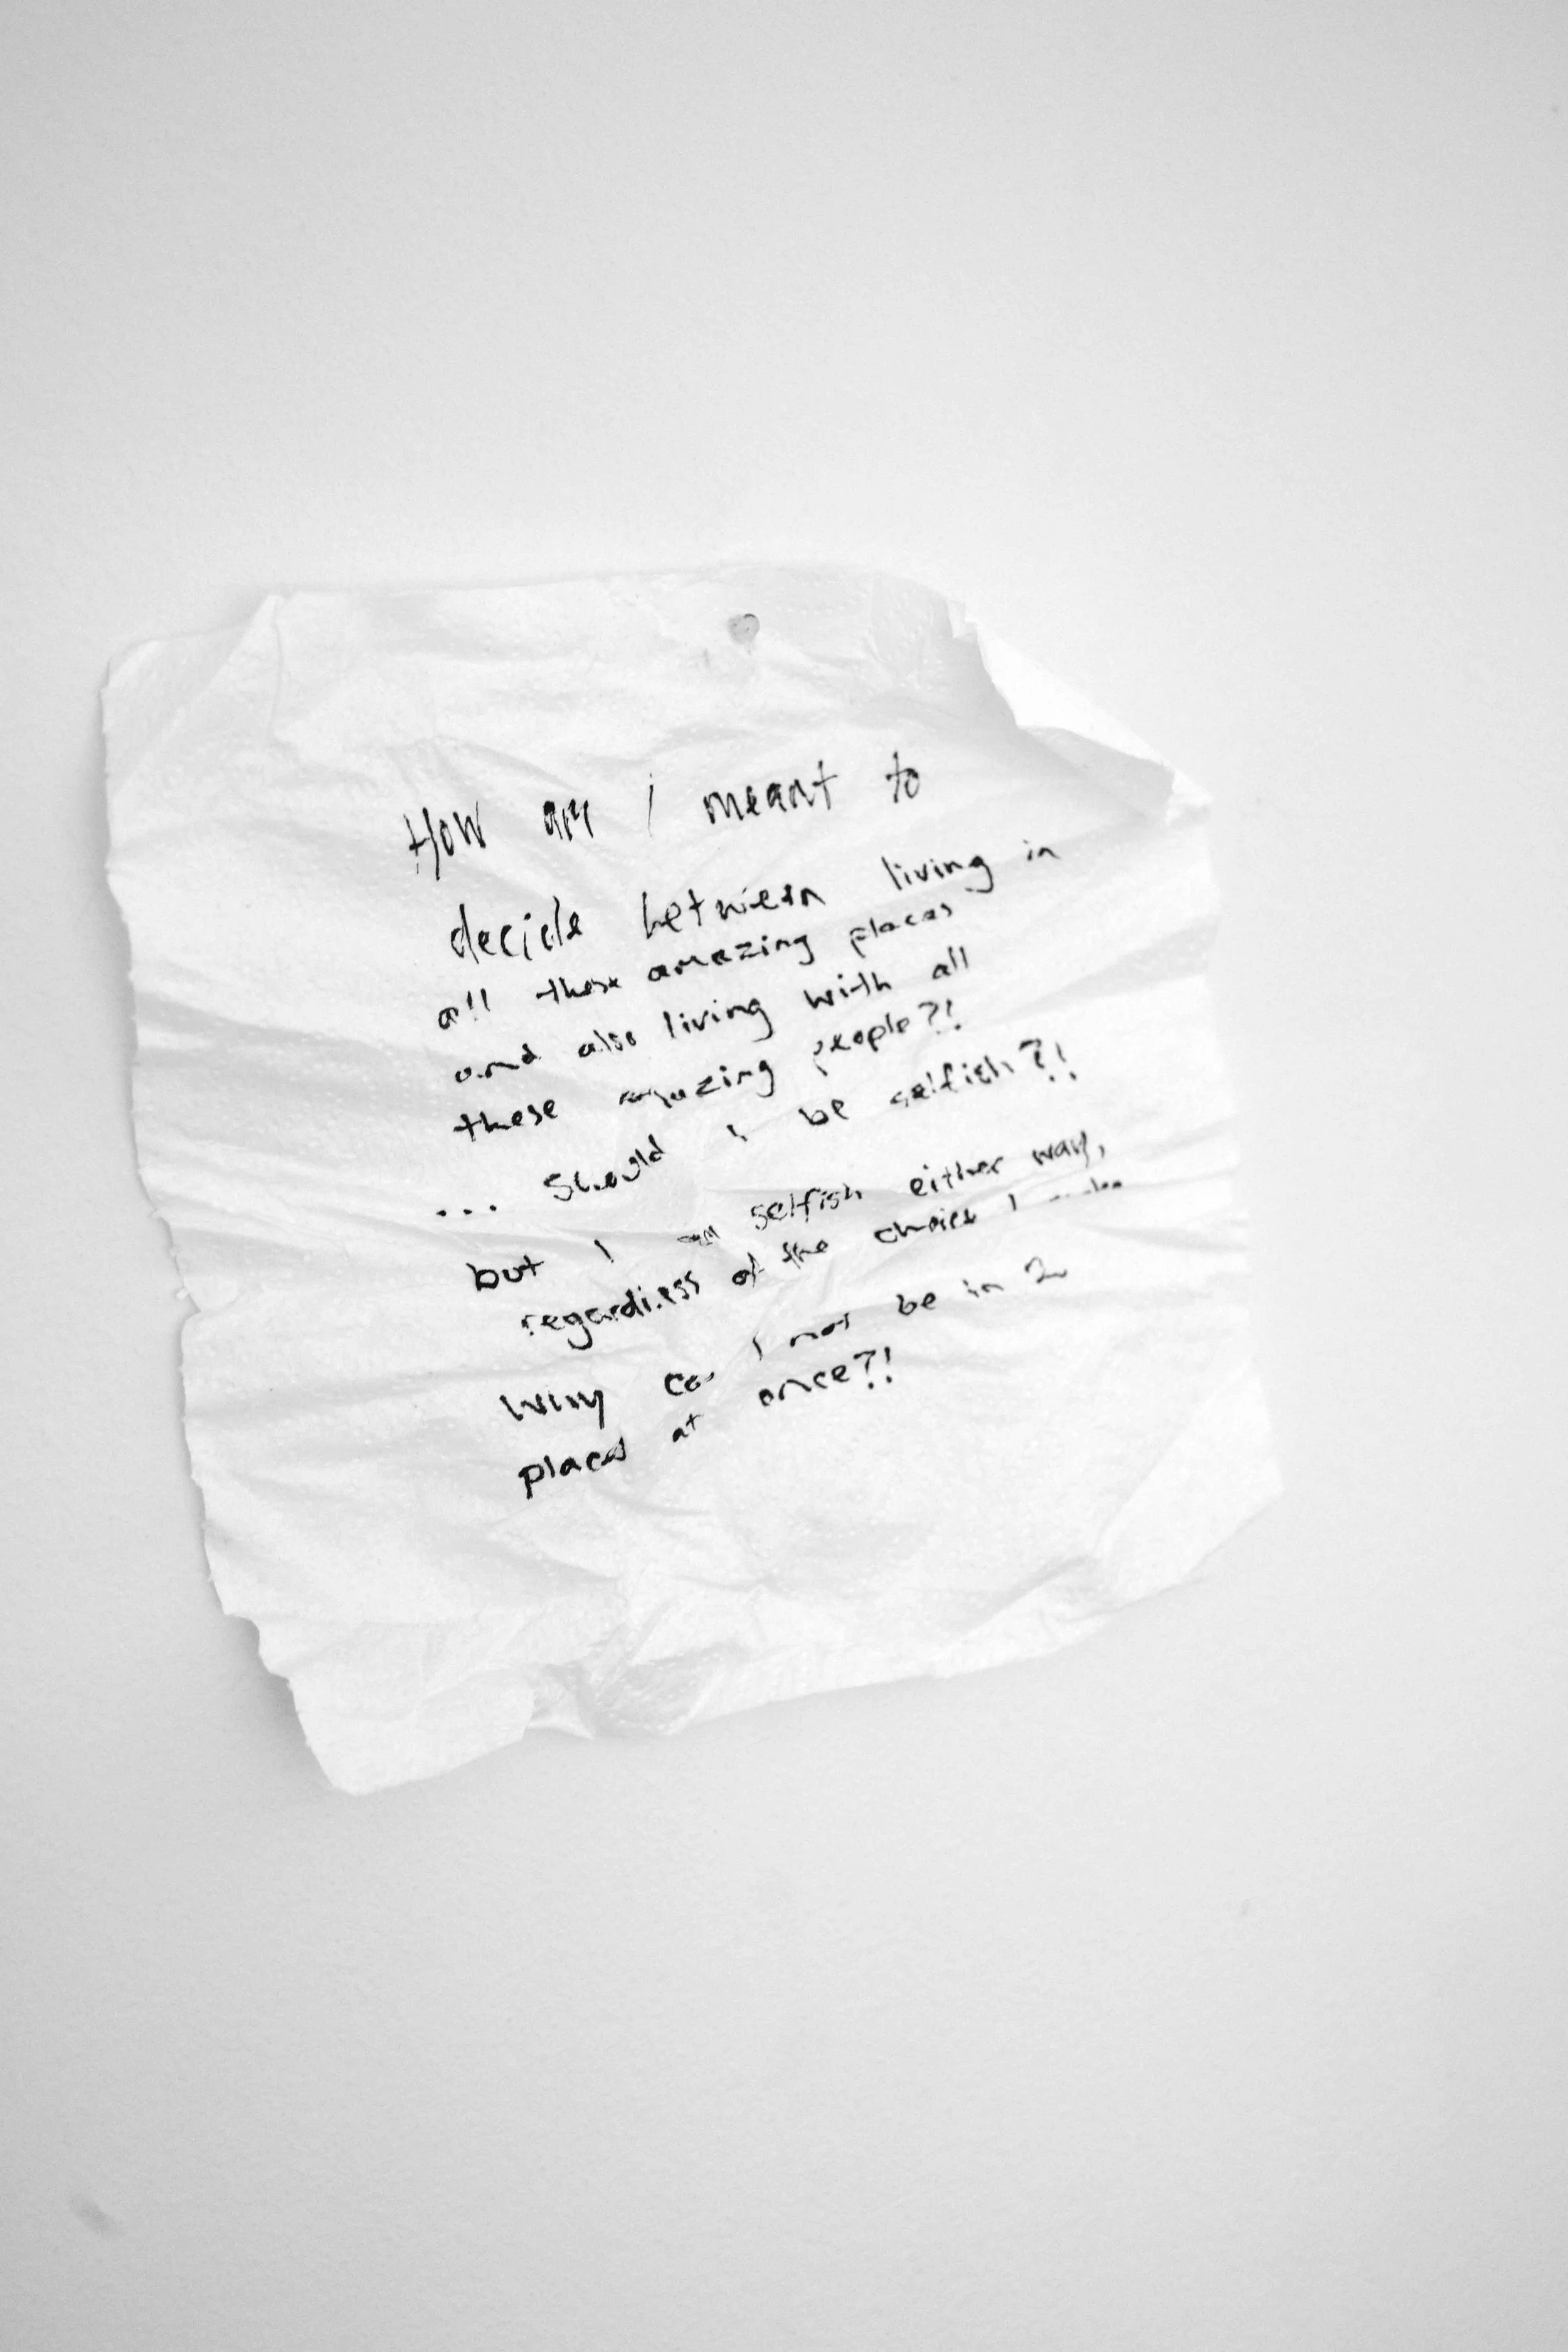 How am i meant to
decide between living in
all these amazing places
and also living with all
these amazing people?!
... Should i be selfish?!
but I am selfish either way,
regardless of the choice I make
Why can I not be in 2
places at once?!